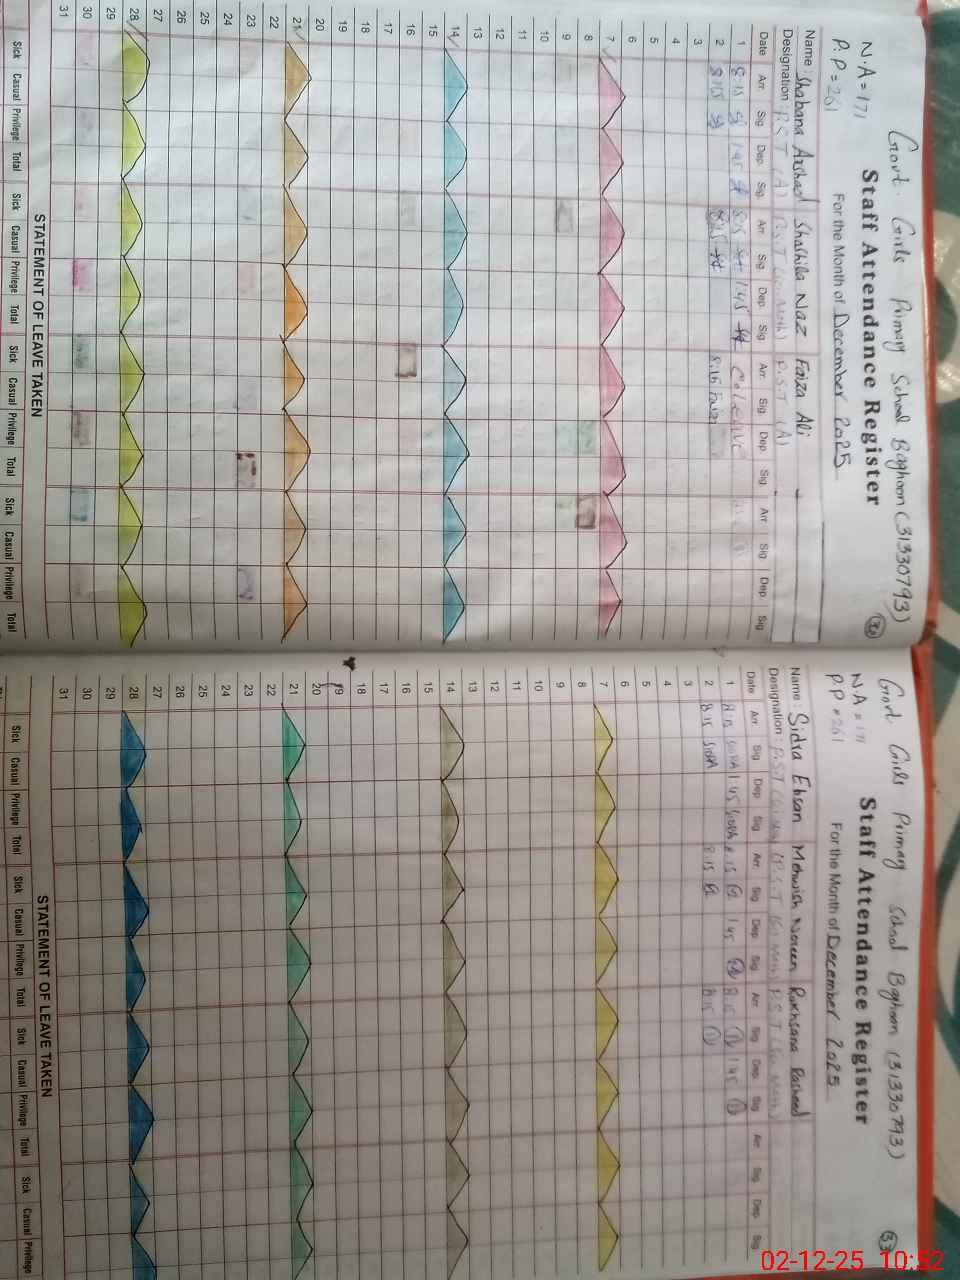 Govt. Girls Primary School Baghoon (31330793)
N.A = 171
Staff Attendance Register
P.P = 261
For the Month of December 2025
Name: Shabana Arshad Shashila Naz Faiza Ali
Designation: P.S.T (A) P.S.T (Sci Math) P.S.T (A)
Date Arr. Sig Dep. Sig. Arr Sig Dep Sig Arr. Sig. Dep Sig. Arr Sig Dep Sig
1 8:15 1:45 8:15 1:45 C/LEAVE
2 8:15 8:15 8:15 Faiza
3
4
5
6
7
8
9
10
11
12
13
14
15
16
17
18
19
20
21
22
23
24
25
26
27
28
29
30
31
STATEMENT OF LEAVE TAKEN
Sick Casual Privilege Total Sick Casual Privilege Total Sick Casual Privilege Total Sick Casual Privilege Total
Govt. Girls Primary School Baghoon (31330793)
N.A = 171
Staff Attendance Register
P.P = 261
33
For the Month of December 2025
Name: Sidra Ehsan Mehwish Noreen Rukhsana Rasheed
Designation: P.S.T (Sci Math) P.S.T (Sci Math) P.S.T (Sci Math)
Date Arr. Sig Dep Sig. Arr. Sig Dep Sig. Arr Sig. Dep Sig. Arr Sig. Dep Sig
1 8:15 SIDRA 1:45 SIDRA 8:15 1:45 8:15 1:45
2 8:15 SIDRA 8:15 8:15
3
4
5
6
7
8
9
10
11
12
13
14
15
16
17
18
19
20
21
22
23
24
25
26
27
28
29
30
31
STATEMENT OF LEAVE TAKEN
Sick Casual Privilege Total Sick Casual Privilege Total Sick Casual Privilege Total Sick Casual Privilege
02-12-25 10:52